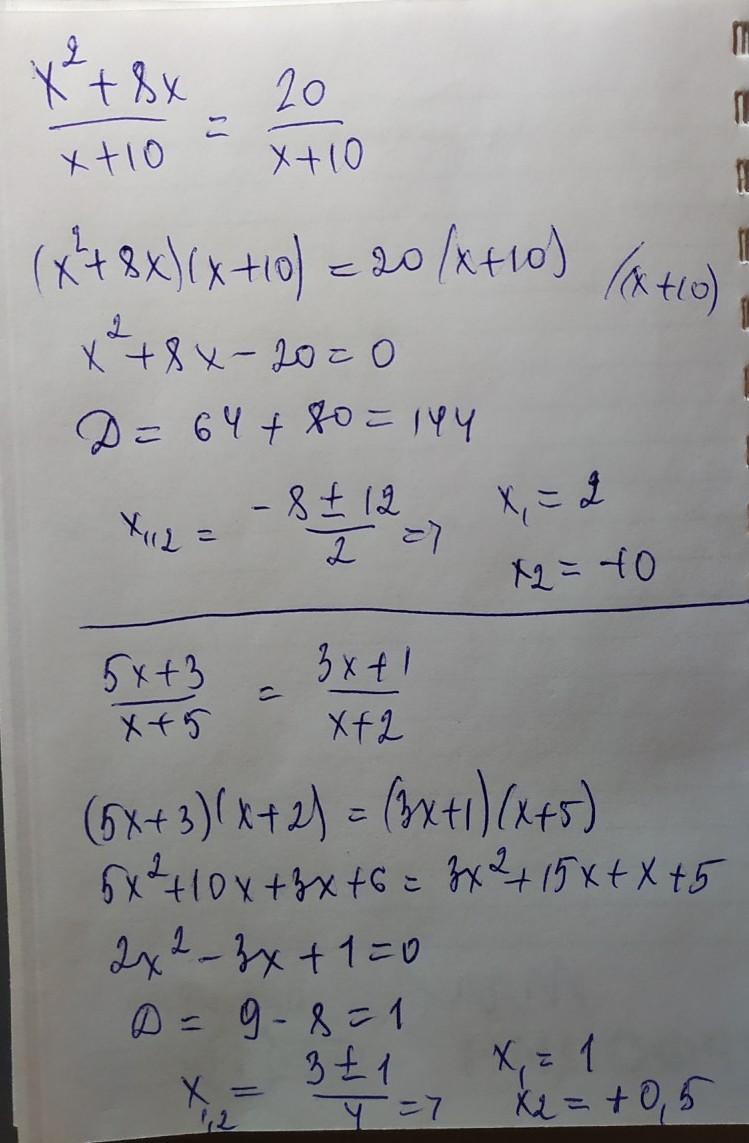 x²+8x / x+10 = 20 / x+10
(x²+8x)(x+10) = 20(x+10) /(x+10)
x²+8x-20=0
D = 64+80=144
x₁,₂ = -8±12 / 2 => x₁ = 2
x₂ = -10
5x+3 / x+5 = 3x+1 / x+2
(5x+3)(x+2) = (3x+1)(x+5)
5x²+10x+3x+6 = 3x²+15x+x+5
2x²-3x+1=0
D = 9-8=1
x₁,₂ = 3±1 / 4 => x₁ = 1
x₂ = +0,5